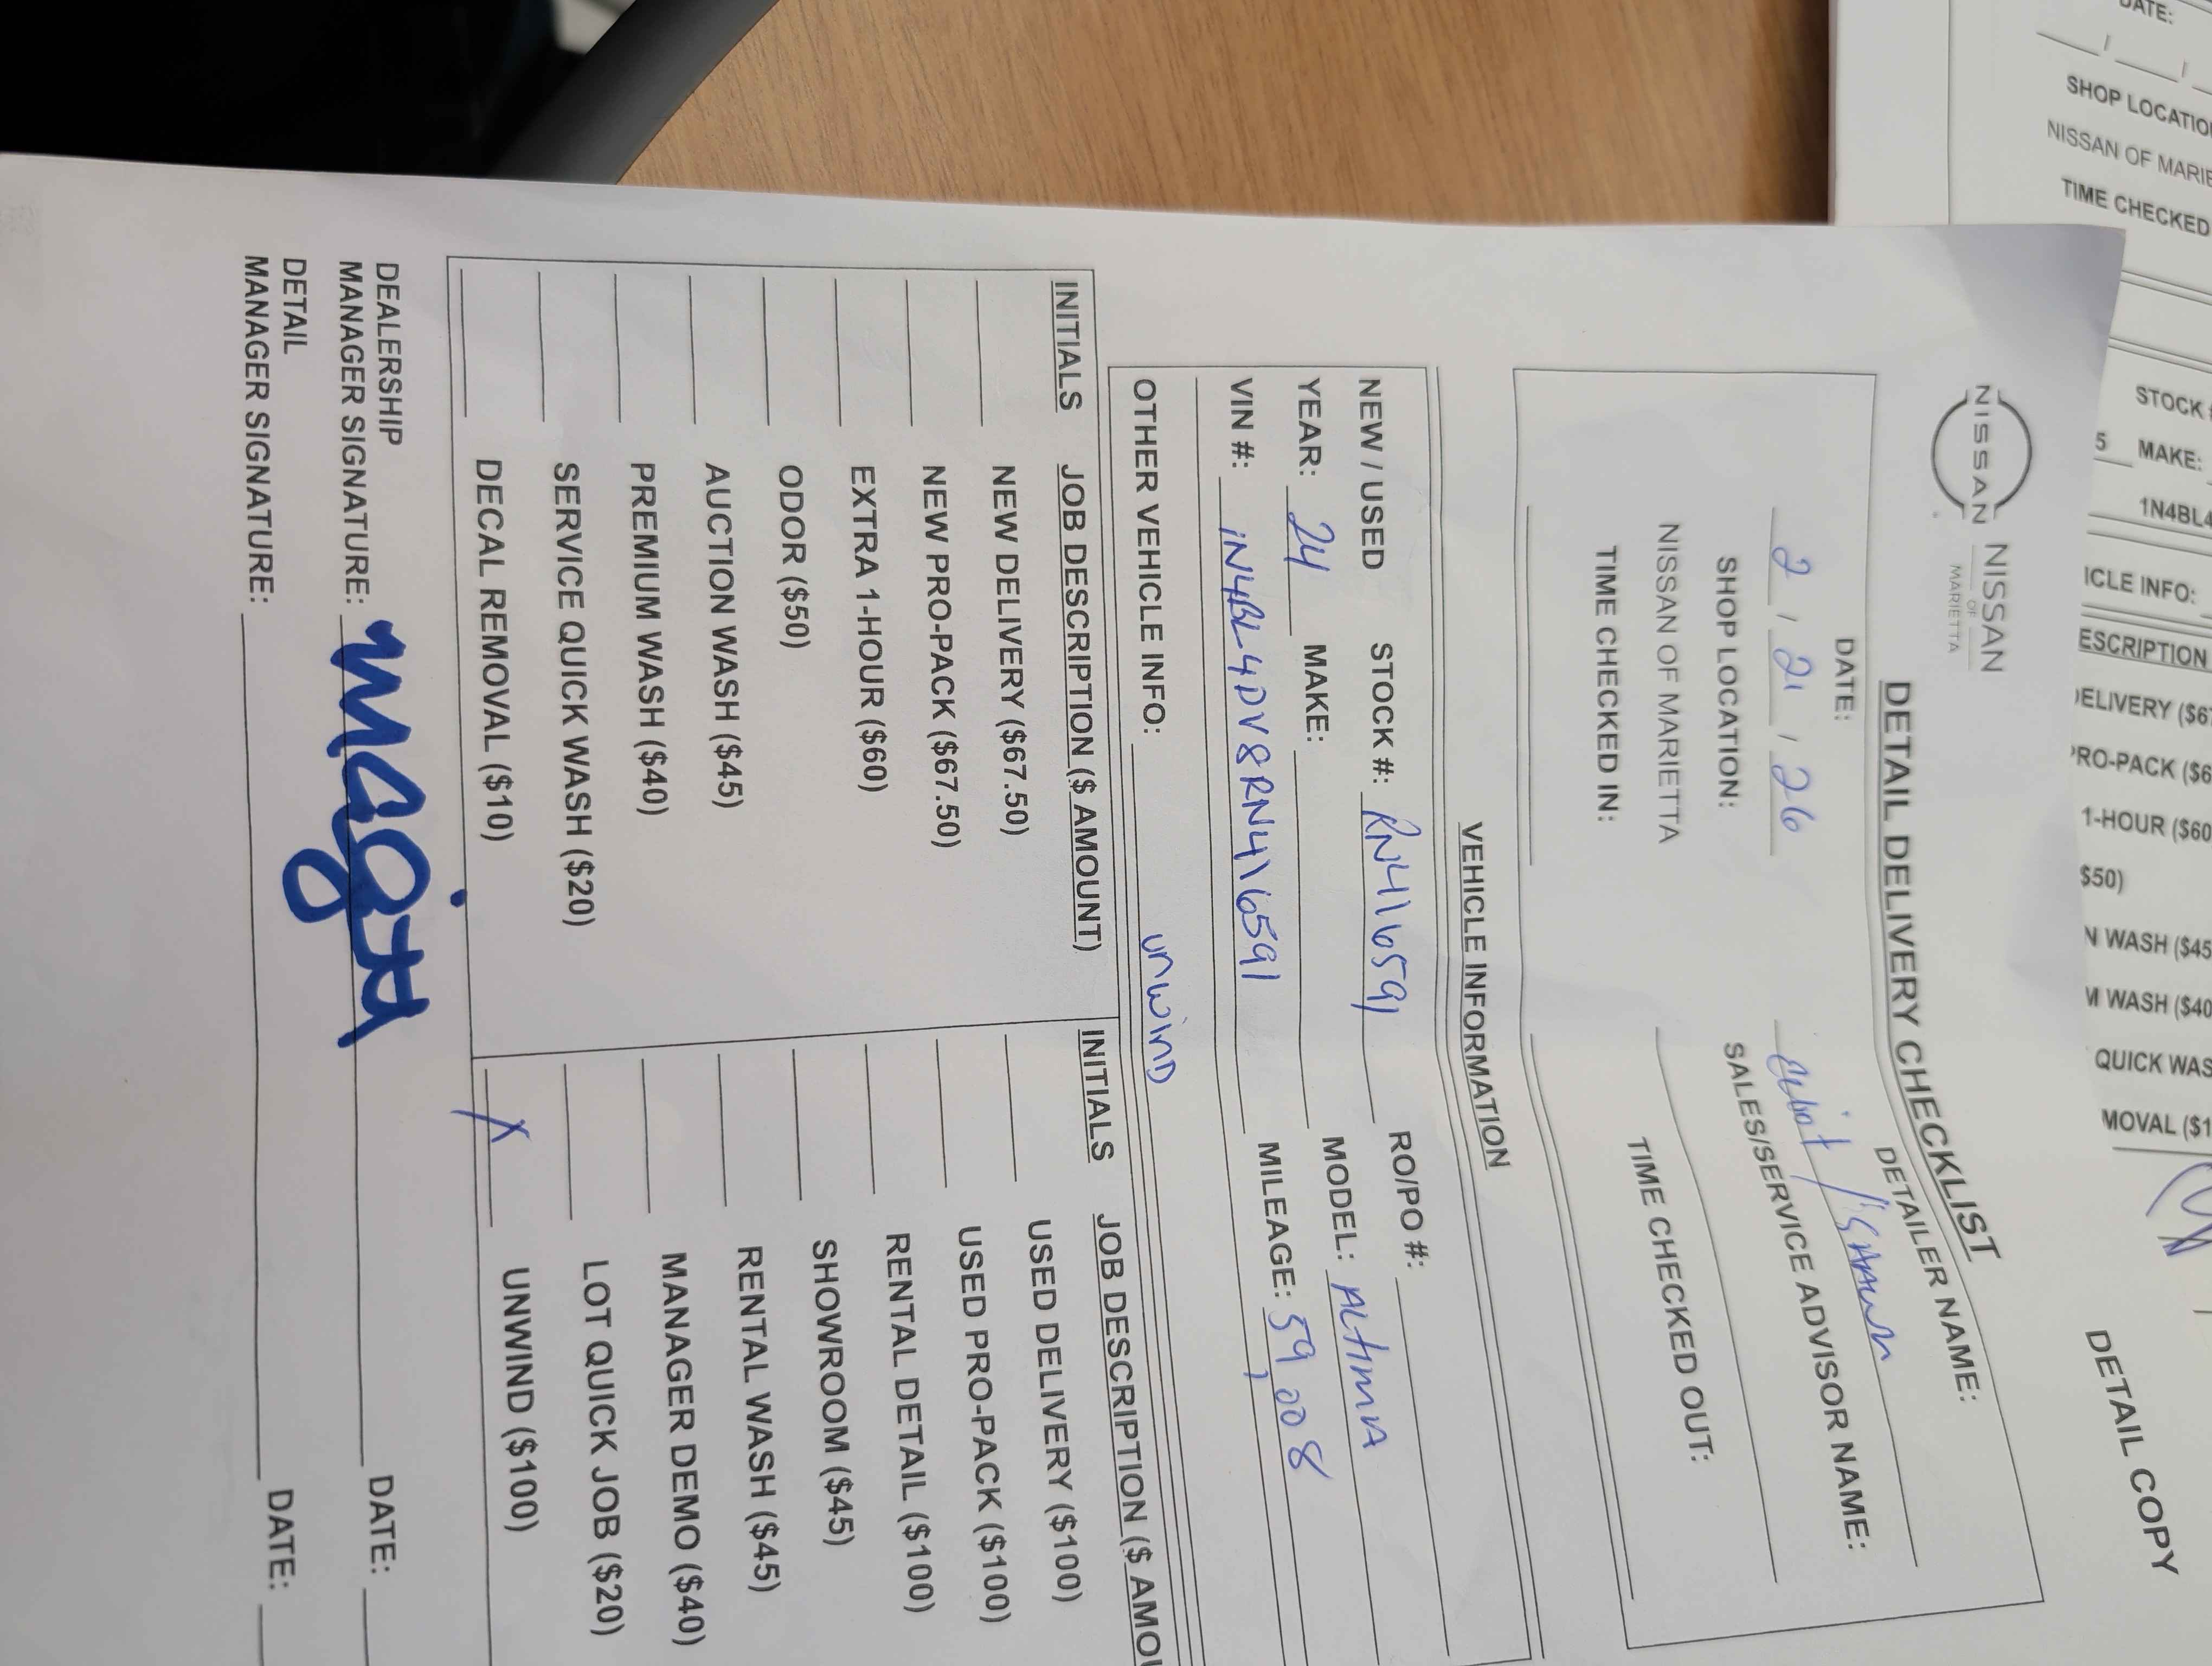 NISSAN
NISSAN
OF
MARIETTA
DETAIL DELIVERY CHECKLIST
DATE:
2 / 21 / 26
SHOP LOCATION:
NISSAN OF MARIETTA
TIME CHECKED IN:
DETAILER NAME:
SALES/SERVICE ADVISOR NAME:
TIME CHECKED OUT:
VEHICLE INFORMATION
NEW / USED STOCK #: RN416591 RO/PO #:
YEAR: 24 MAKE: MODEL: ALtimA
VIN #: 1N4BL4DV8RN416591 MILEAGE: 59,008
OTHER VEHICLE INFO: UNWIND
INITIALS JOB DESCRIPTION ($ AMOUNT) INITIALS JOB DESCRIPTION ($ AMOU
NEW DELIVERY ($67.50) USED DELIVERY ($100)
NEW PRO-PACK ($67.50) USED PRO-PACK ($100)
EXTRA 1-HOUR ($60) RENTAL DETAIL ($100)
ODOR ($50) SHOWROOM ($45)
AUCTION WASH ($45) RENTAL WASH ($45)
PREMIUM WASH ($40) MANAGER DEMO ($40)
SERVICE QUICK WASH ($20) LOT QUICK JOB ($20)
DECAL REMOVAL ($10) X UNWIND ($100)
DEALERSHIP
MANAGER SIGNATURE: DATE:
DETAIL
MANAGER SIGNATURE: DATE:
DATE:
SHOP LOCATIO
NISSAN OF MARIE
TIME CHECKED
STOCK #
5 MAKE:
1N4BL4
ICLE INFO:
ESCRIPTION
DELIVERY ($67
PRO-PACK ($6
1-HOUR ($60
$50)
N WASH ($45
M WASH ($40
QUICK WAS
MOVAL ($1
DETAIL COPY